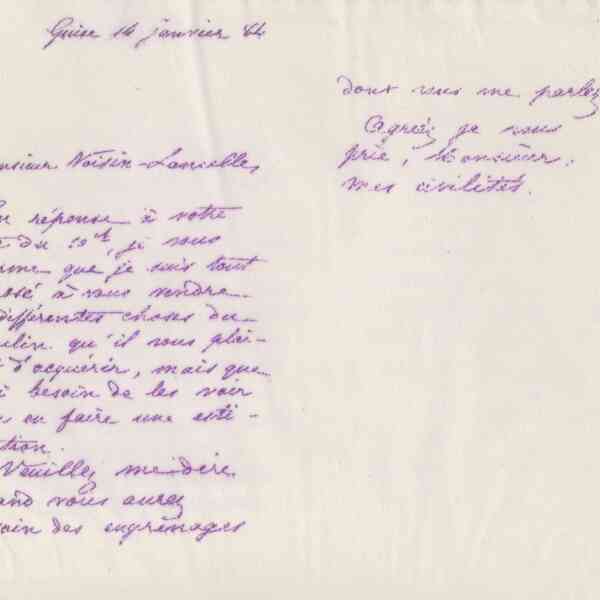 Guise 14 janvier 84
nsieur Voisin-Lancelle,
n réponse à votre
du 12 ct, je vous
rme que je suis tout
osé à vous vendre
différentes choses du
ulin qu'il vous plai-
d'acquérir, mais que
i besoin de les voir
en faire une esti-
tion.
Veuillez me dire
and vous aurez
oin des engrenages
dont vous me parlez
Agréez je vous
prie, Monsieur,
mes civilités.